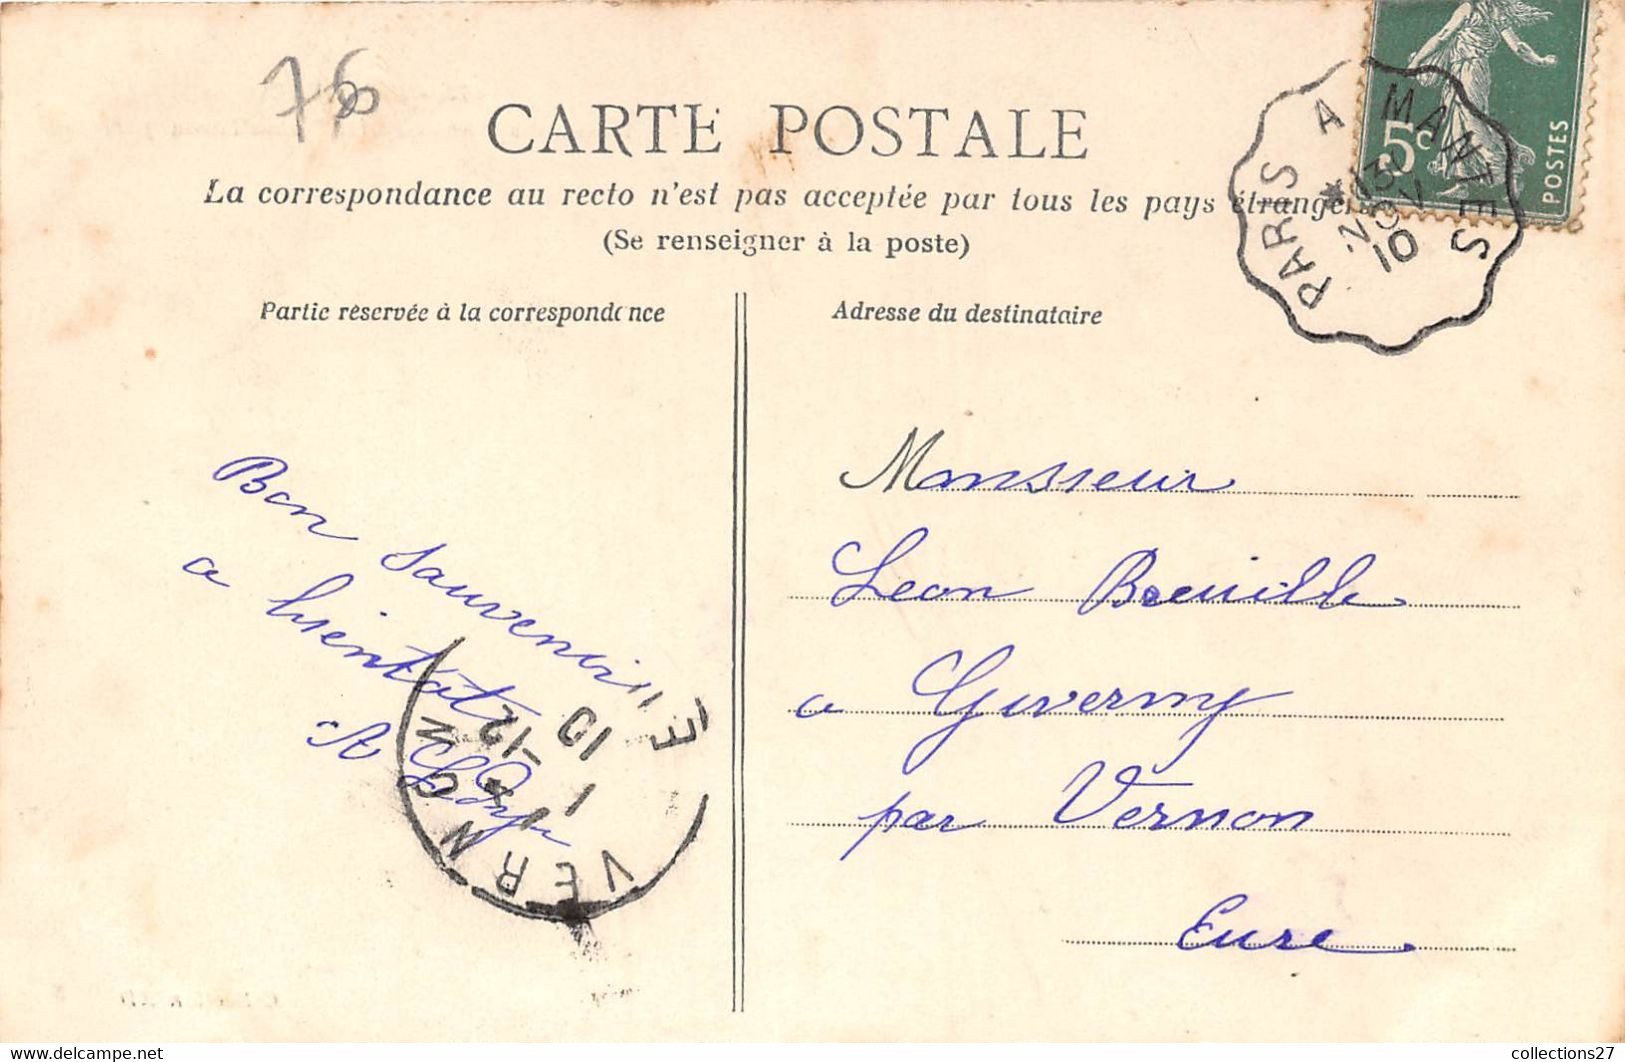 76
CARTE POSTALE
La correspondance au recto n'est pas acceptée par tous les pays étrangers
(Se renseigner à la poste)
Partie réservée à la correspondance
Adresse du destinataire
5c
POSTES
PARIS A MANTES
10
Bon Souvenir
a bientôt
A
Monsieur
Leon Breuille
a Giverny
par Vernon
Eure
VERNON
E
1 -12
10
www.delcampe.net
collections27